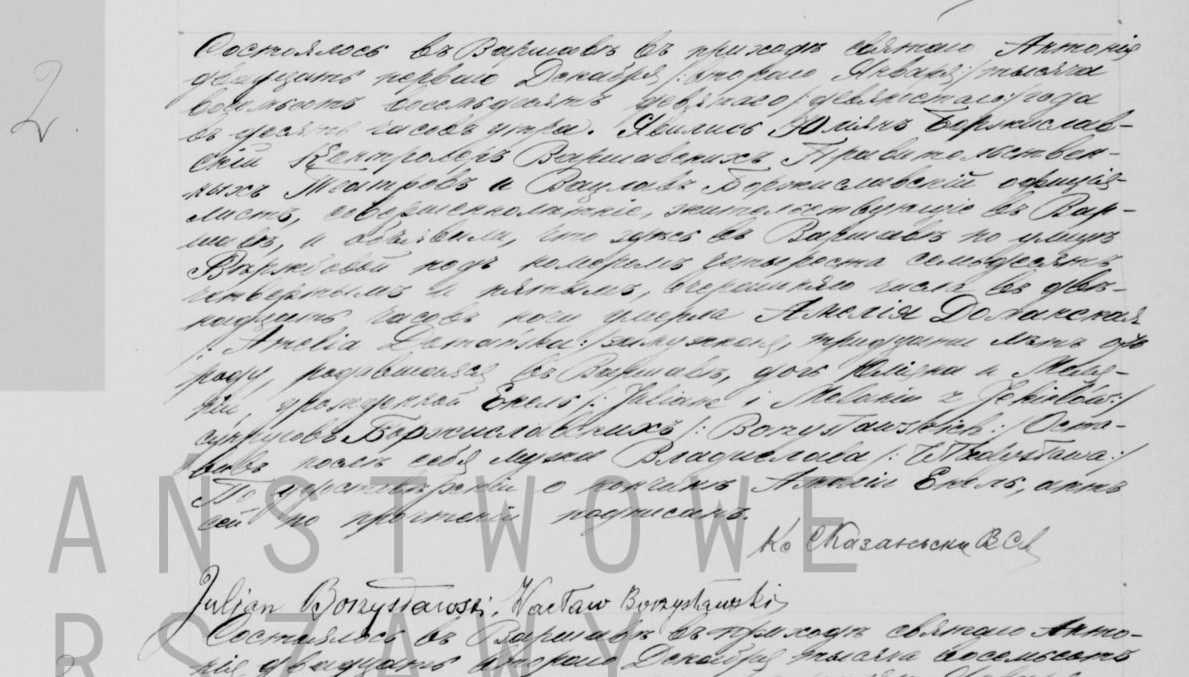 2.
Состоялось въ Варшавѣ въ приходѣ святаго Антонія
двадцать перваго Декабря /: втораго Января :/ тысяча
восемьсотъ восемьдесятъ девятаго /: девяностаго :/ года
въ десять часовъ утра. Явились Юліянъ Боржислав-
скій Контролеръ Варшавскихъ Правительствен-
ныхъ Театровъ и Вацлавъ Боржиславскій оффиція-
листъ, совершеннолѣтніе, жительствующіе въ Вар-
шавѣ, и объявили, что здѣсь въ Варшавѣ по улицѣ
Вержбовой подъ номеромъ четыреста семьдесятъ
четвертымъ и пятымъ, вчерашняго числа въ двѣ-
надцать часовъ ночи умерла Амелія Доманская
/: Amelia Domańska :/ замужняя, тридцати лѣтъ отъ
роду, родившаяся въ Варшавѣ, дочь Юліяна и Мела-
ніи, урожденной Екель /: Juliana i Melanii z Jekielów :/
супруговъ Боржиславскихъ /: Borzysławskich :/ Оста-
вивъ послѣ себя мужа Владислава /: Władysława :/
По удостовѣреніи о кончинѣ Амеліи Екель, актъ
сей по прочтеніи подписанъ.
Кс Казаньски
Julian Borzysławski, Wacław Borzysławski
Состоялось въ Варшавѣ въ приходѣ святаго Анто-
нія двадцать втораго Декабря тысяча восемьсотъ
AŃSTWOWE
RSZAWY